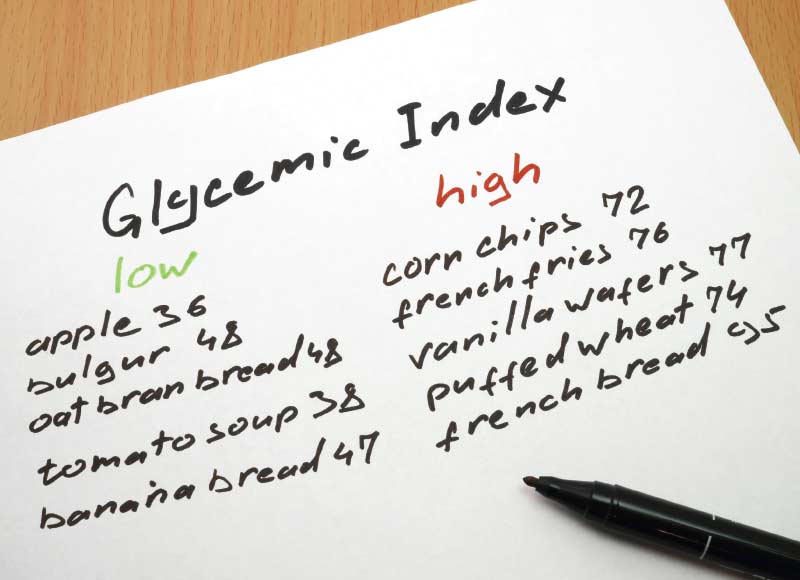 Glycemic Index
low
apple 36
bulgur 48
oat bran bread 48
tomato soup 38
banana bread 47
high
corn chips 72
french fries 76
vanilla wafers 77
puffed wheat 74
french bread 95